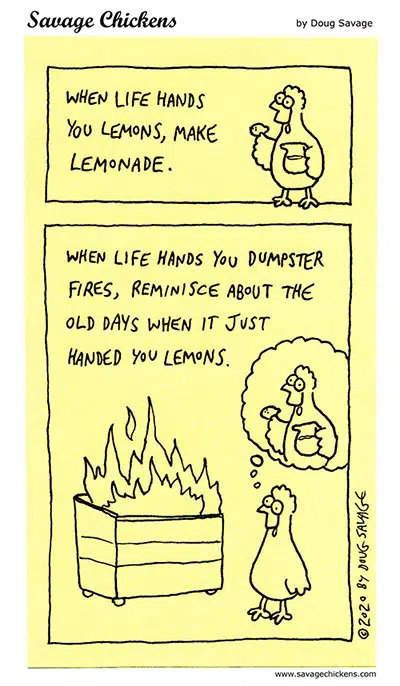 Savage Chickens
by Doug Savage
WHEN LIFE HANDS
YOU LEMONS, MAKE
LEMONADE.
WHEN LIFE HANDS YOU DUMPSTER
FIRES, REMINISCE ABOUT THE
OLD DAYS WHEN IT JUST
HANDED YOU LEMONS.
©2020 BY DOUG SAVAGE
www.savagechickens.com